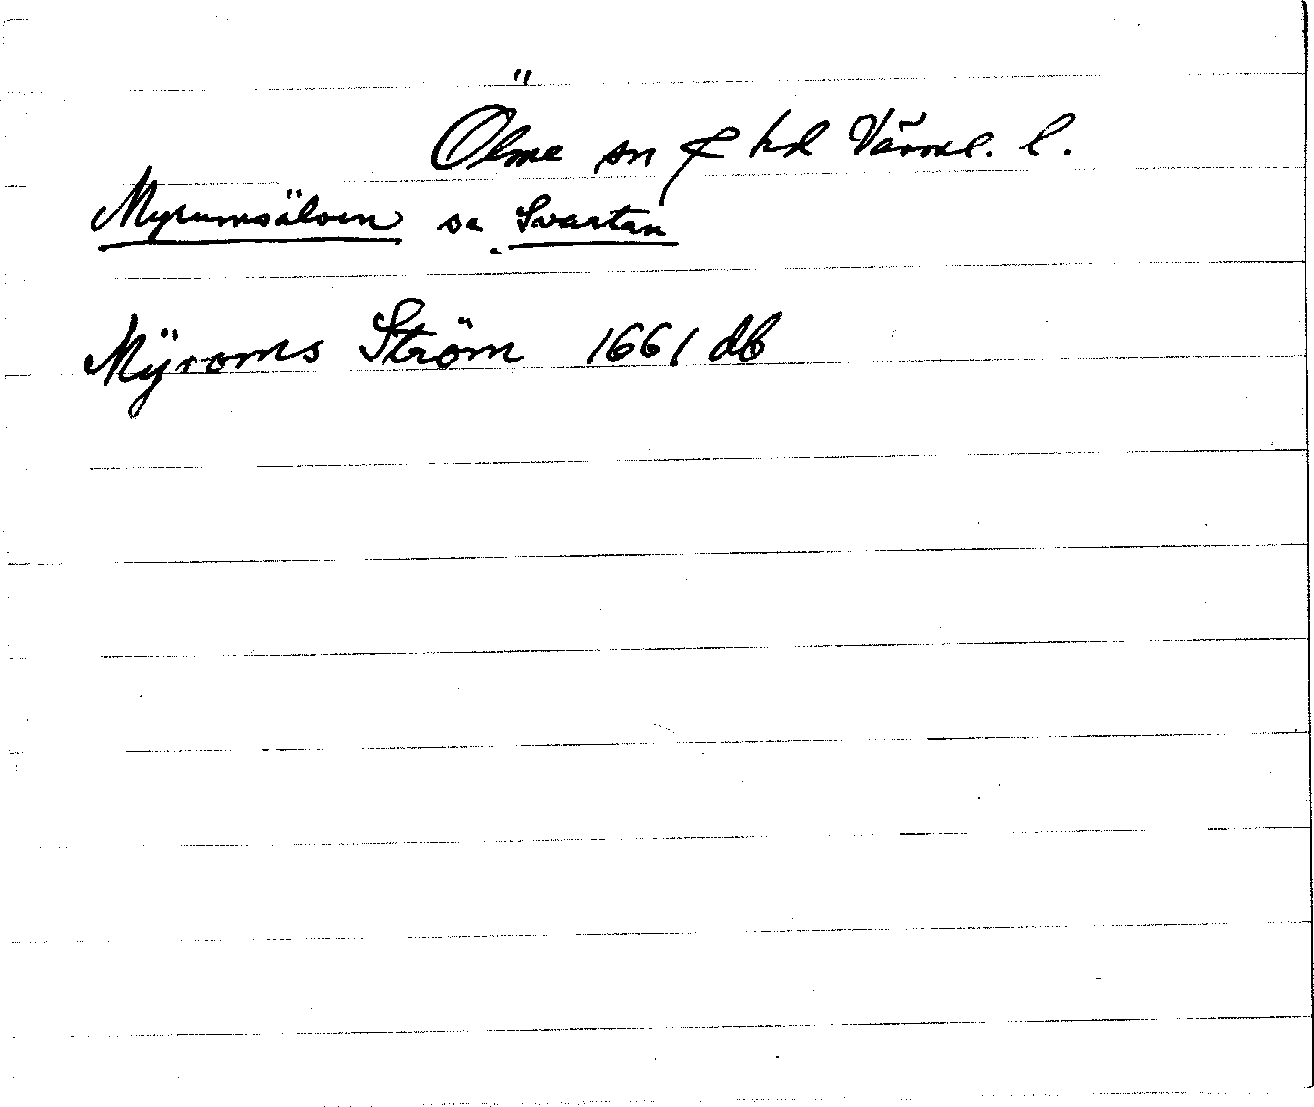 Ölme sn & hd Värml. l.
Myrumsälven se Svartan
Mÿroms Ström 1661 db